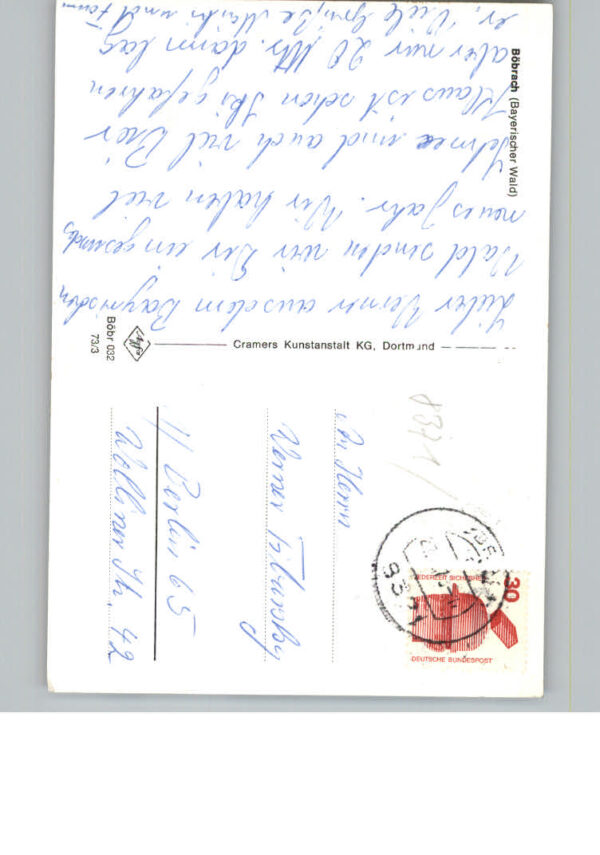 Böbrach (Bayerischer Wald)
Lieber Werner aus dem Bayrischen
Wald senden wir Dir ein gesundes
neues Jahr. Wir haben viel
Schnee und auch viel Bier
Klaus ist schon Ski gefahren
aber nur 20 Mtr. dann lag
er. Viele Grüße und
Böbr 032
73/3
Agfa
Cramers Kunstanstalt KG, Dortmund
8371/
30
JEDERZEIT SICHERHEIT
DEUTSCHE BUNDESPOST
An Herrn
Werner
1/ Berlin 65
Str. 42